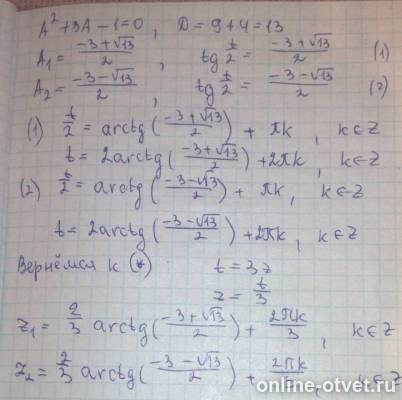 A² + 3A − 1 = 0 , D = 9 + 4 = 13
A₁ = (−3 + √13)/2 , tg t/2 = (−3 + √13)/2 (1)
A₂ = (−3 − √13)/2 , tg t/2 = (−3 − √13)/2 (2)
(1) t/2 = arctg((−3 + √13)/2) + πk , k ∈ Z
t = 2arctg((−3 + √13)/2) + 2πk , k ∈ Z
(2) t/2 = arctg((−3 − √13)/2) + πk , k ∈ Z
t = 2arctg((−3 − √13)/2) + 2πk , k ∈ Z
Вернёмся к (*) t = 3z
z = t/3
z₁ = 2/3 arctg((−3 + √13)/2) + 2πk/3 , k ∈ Z
z₂ = 2/3 arctg((−3 − √13)/2) + 2πk/ , k ∈ Z
online-otvet.ru